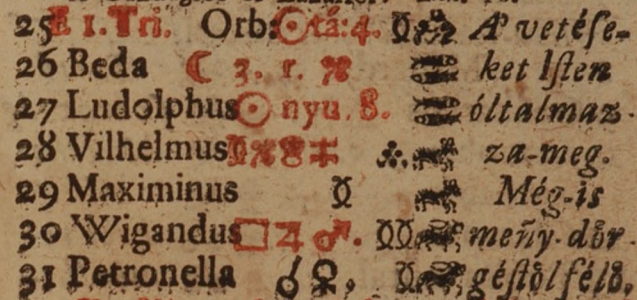 25 E 1. Tri. Orb: ☉ tá: 4. A' vetése-
26 Beda ☾ 3. r. ket Isten
27 Ludolphus ☉ nyu. 8. óltalmaz-
28 Vilhelmus za-meg.
29 Maximinus Még-is
30 Wigandus □ ♃ ♂. meñy-dör-
31 Petronella ☌ ♀,